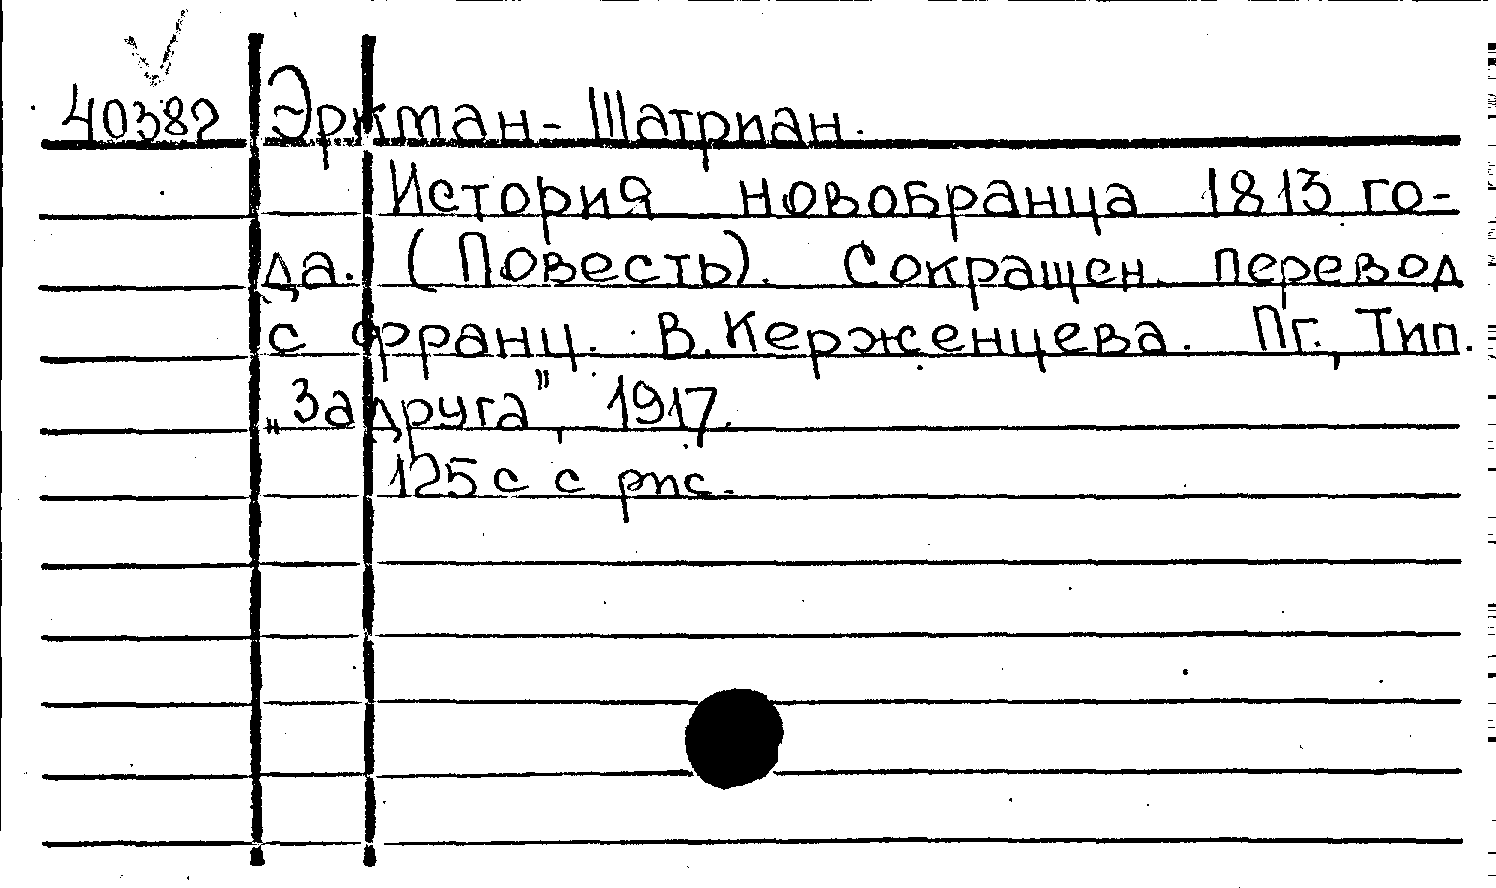 40382 Эркман-Шатриан.
История новобранца 1813 го-
да. (Повесть). Сокращен. перевод
с франц. В.Керженцева. Пг., Тип.
„Задруга”, 1917.
125 с с рис.